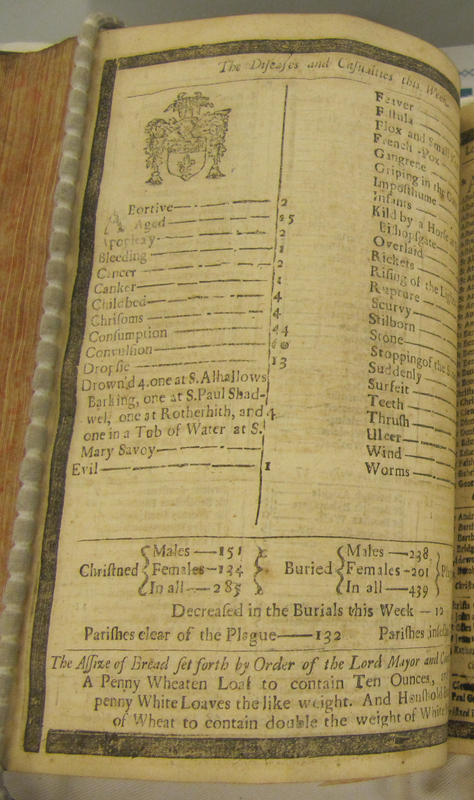 The Diseaſes and Caſualties this Week.
Abortive — 2
Aged — 25
Apoplexy — 2
Bleeding — 1
Cancer — 2
Canker — 1
Childbed — 4
Chriſoms — 4
Conſumption — 44
Convulſion — 60
Dropſie — 13
Drown'd 4. one at S. Alhallows
Barking, one at S. Paul Shad-
wel, one at Rotherhith, and 4
one in a Tub of Water at S.
Mary Savoy —
Evil — 1
Feaver
Fiſtula
Flox and Small
French-Pox
Gangrene
Griping in the
Impoſthume
Infants
Kild by a Horſe
Biſhopſgate
Overlaid
Rickets
Riſing of the
Rupture
Scurvy
Stilborn
Stone
Stopping of the
Suddenly
Surfeit
Teeth
Thruſh
Ulcer
Wind
Worms
Chriſtned { Males — 151
Females — 134
In all — 285 }
Buried { Males — 238
Females — 201
In all — 439 }
Decreaſed in the Burials this Week — 12
Pariſhes clear of the Plague — 132 Pariſhes
The Aſſize of Bread ſet forth by Order of the Lord Mayor and
A Penny Wheaten Loaf to contain Ten Ounces,
penny White Loaves the like weight. And Houſhold
of Wheat to contain double the weight of White